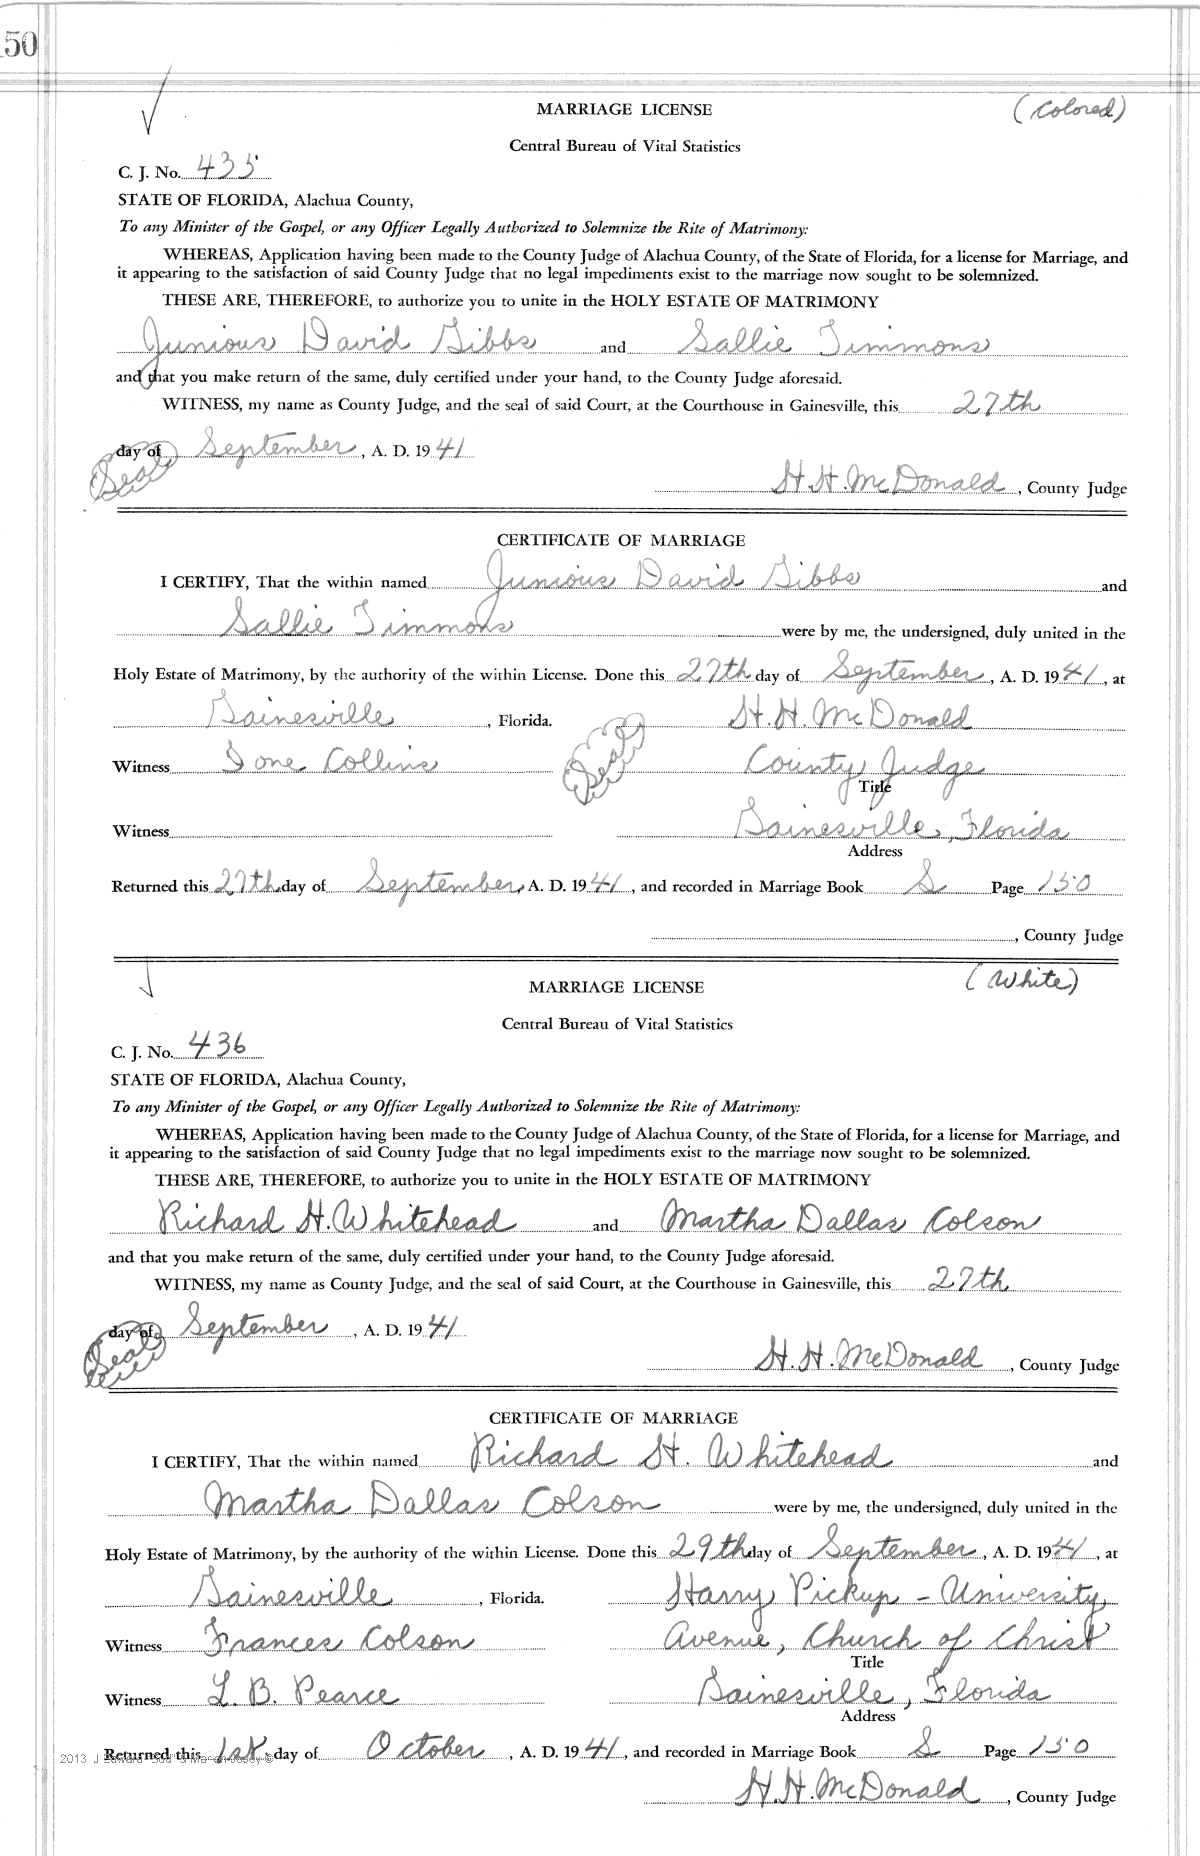 150
MARRIAGE LICENSE (Colored)
Central Bureau of Vital Statistics
C. J. No. 435
STATE OF FLORIDA, Alachua County,
To any Minister of the Gospel, or any Officer Legally Authorized to Solemnize the Rite of Matrimony:
WHEREAS, Application having been made to the County Judge of Alachua County, of the State of Florida, for a license for Marriage, and
it appearing to the satisfaction of said County Judge that no legal impediments exist to the marriage now sought to be solemnized.
THESE ARE, THEREFORE, to authorize you to unite in the HOLY ESTATE OF MATRIMONY
Junious David Gibbs and Sallie Timmons
and that you make return of the same, duly certified under your hand, to the County Judge aforesaid.
WITNESS, my name as County Judge, and the seal of said Court, at the Courthouse in Gainesville, this 27th
day of September, A. D. 1941
(Seal)
H. H. McDonald, County Judge
CERTIFICATE OF MARRIAGE
I CERTIFY, That the within named Junious David Gibbs and
Sallie Timmons were by me, the undersigned, duly united in the
Holy Estate of Matrimony, by the authority of the within License. Done this 27th day of September, A. D. 1941, at
Gainesville, Florida. H. H. McDonald
Witness Ione Collins (Seal) County Judge
Title
Witness Gainesville, Florida
Address
Returned this 27th day of September, A. D. 1941, and recorded in Marriage Book S Page 150
, County Judge
MARRIAGE LICENSE (White)
Central Bureau of Vital Statistics
C. J. No. 436
STATE OF FLORIDA, Alachua County,
To any Minister of the Gospel, or any Officer Legally Authorized to Solemnize the Rite of Matrimony:
WHEREAS, Application having been made to the County Judge of Alachua County, of the State of Florida, for a license for Marriage, and
it appearing to the satisfaction of said County Judge that no legal impediments exist to the marriage now sought to be solemnized.
THESE ARE, THEREFORE, to authorize you to unite in the HOLY ESTATE OF MATRIMONY
Richard H. Whitehead and Martha Dallas Colson
and that you make return of the same, duly certified under your hand, to the County Judge aforesaid.
WITNESS, my name as County Judge, and the seal of said Court, at the Courthouse in Gainesville, this 27th
day of September, A. D. 1941
(Seal)
H. H. McDonald, County Judge
CERTIFICATE OF MARRIAGE
I CERTIFY, That the within named Richard H. Whitehead and
Martha Dallas Colson were by me, the undersigned, duly united in the
Holy Estate of Matrimony, by the authority of the within License. Done this 29th day of September, A. D. 1941, at
Gainesville, Florida. Harry Pickup - University
Witness Frances Colson Avenue, Church of Christ
Title
Witness L. B. Pearce Gainesville, Florida
Address
Returned this 1st day of October, A. D. 1941, and recorded in Marriage Book S Page 150
2013 J Edward
H. H. McDonald, County Judge